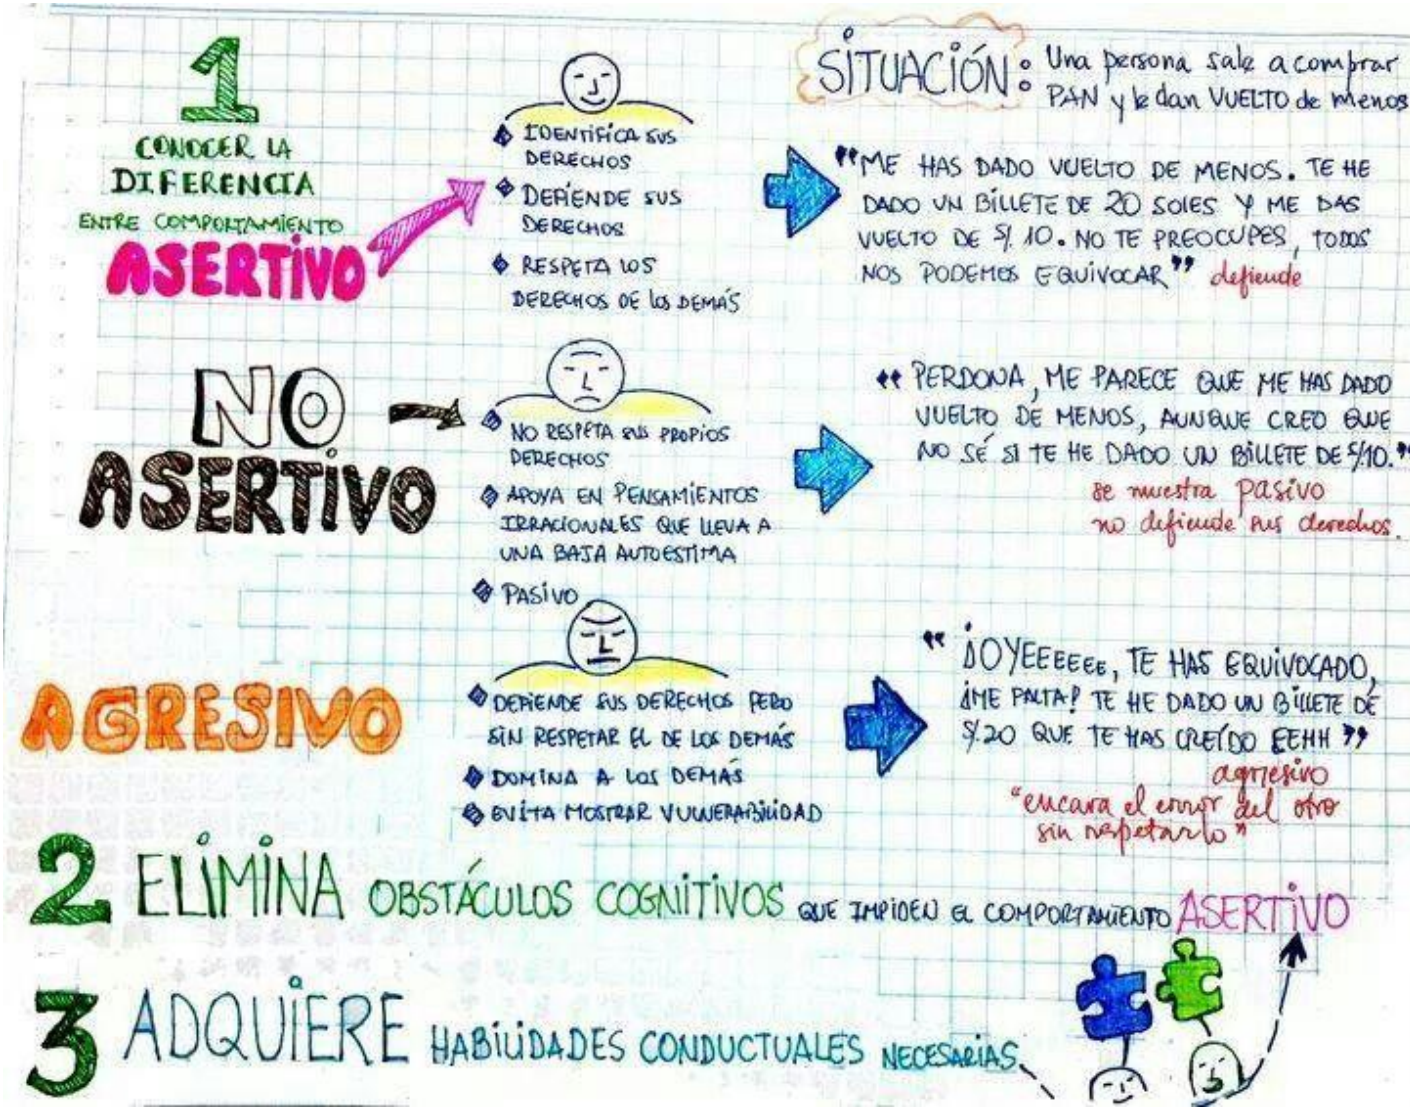 1
CONOCER LA
DIFERENCIA
ENTRE COMPORTAMIENTO
ASERTIVO
IDENTIFICA SUS
DERECHOS
DEFIENDE SUS
DERECHOS
RESPETA LOS
DERECHOS DE LOS DEMÁS
SITUACIÓN: Una persona sale a comprar
PAN y le dan VUELTO de menos
"ME HAS DADO VUELTO DE MENOS. TE HE
DADO UN BILLETE DE 20 SOLES Y ME DAS
VUELTO DE S/. 10. NO TE PREOCUPES, TODOS
NOS PODEMOS EQUIVOCAR" defiende
NO
ASERTIVO
NO RESPETA SUS PROPIOS
DERECHOS
APOYA EN PENSAMIENTOS
IRRACIONALES QUE LLEVA A
UNA BAJA AUTOESTIMA
PASIVO
"PERDONA, ME PARECE QUE ME HAS DADO
VUELTO DE MENOS, AUNQUE CREO QUE
NO SÉ SI TE HE DADO UN BILLETE DE S/10."
se muestra pasivo
no defiende sus derechos.
AGRESIVO
DEFIENDE SUS DERECHOS PERO
SIN RESPETAR EL DE LOS DEMÁS
DOMINA A LOS DEMÁS
EVITA MOSTRAR VULNERABILIDAD
"¡OYEEEEEE, TE HAS EQUIVOCADO,
¡ME FALTA! TE HE DADO UN BILLETE DE
S/.20 QUE TE HAS CREÍDO EEHH"
agresivo
"encara el error del otro
sin respetarlo"
2 ELIMINA OBSTÁCULOS COGNITIVOS QUE IMPIDEN EL COMPORTAMIENTO ASERTIVO
3 ADQUIERE HABILIDADES CONDUCTUALES NECESARIAS